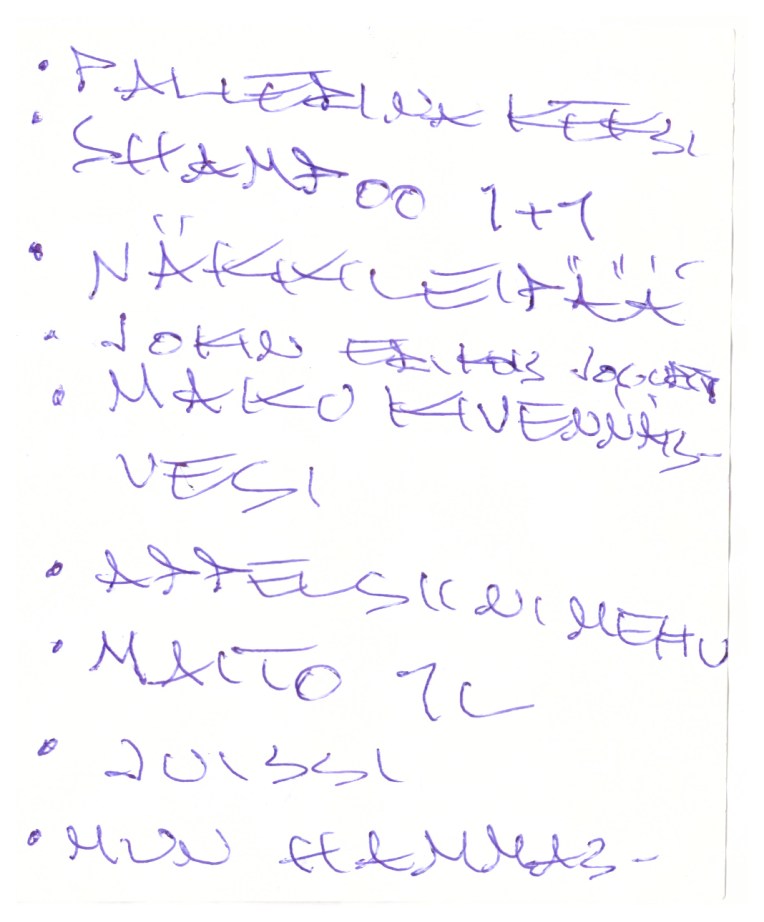 • PALLERINA KEKSI
• SHAMPOO 1+1
• NÄKKILEIPÄÄ
• JOKIN ERIKOIS JOGURTTI
• MAKO KIVENNÄIS-
VESI
• APPELSIINIMEHU
• MAITO 1L
• JUISSI
• MUN HAMMAS-